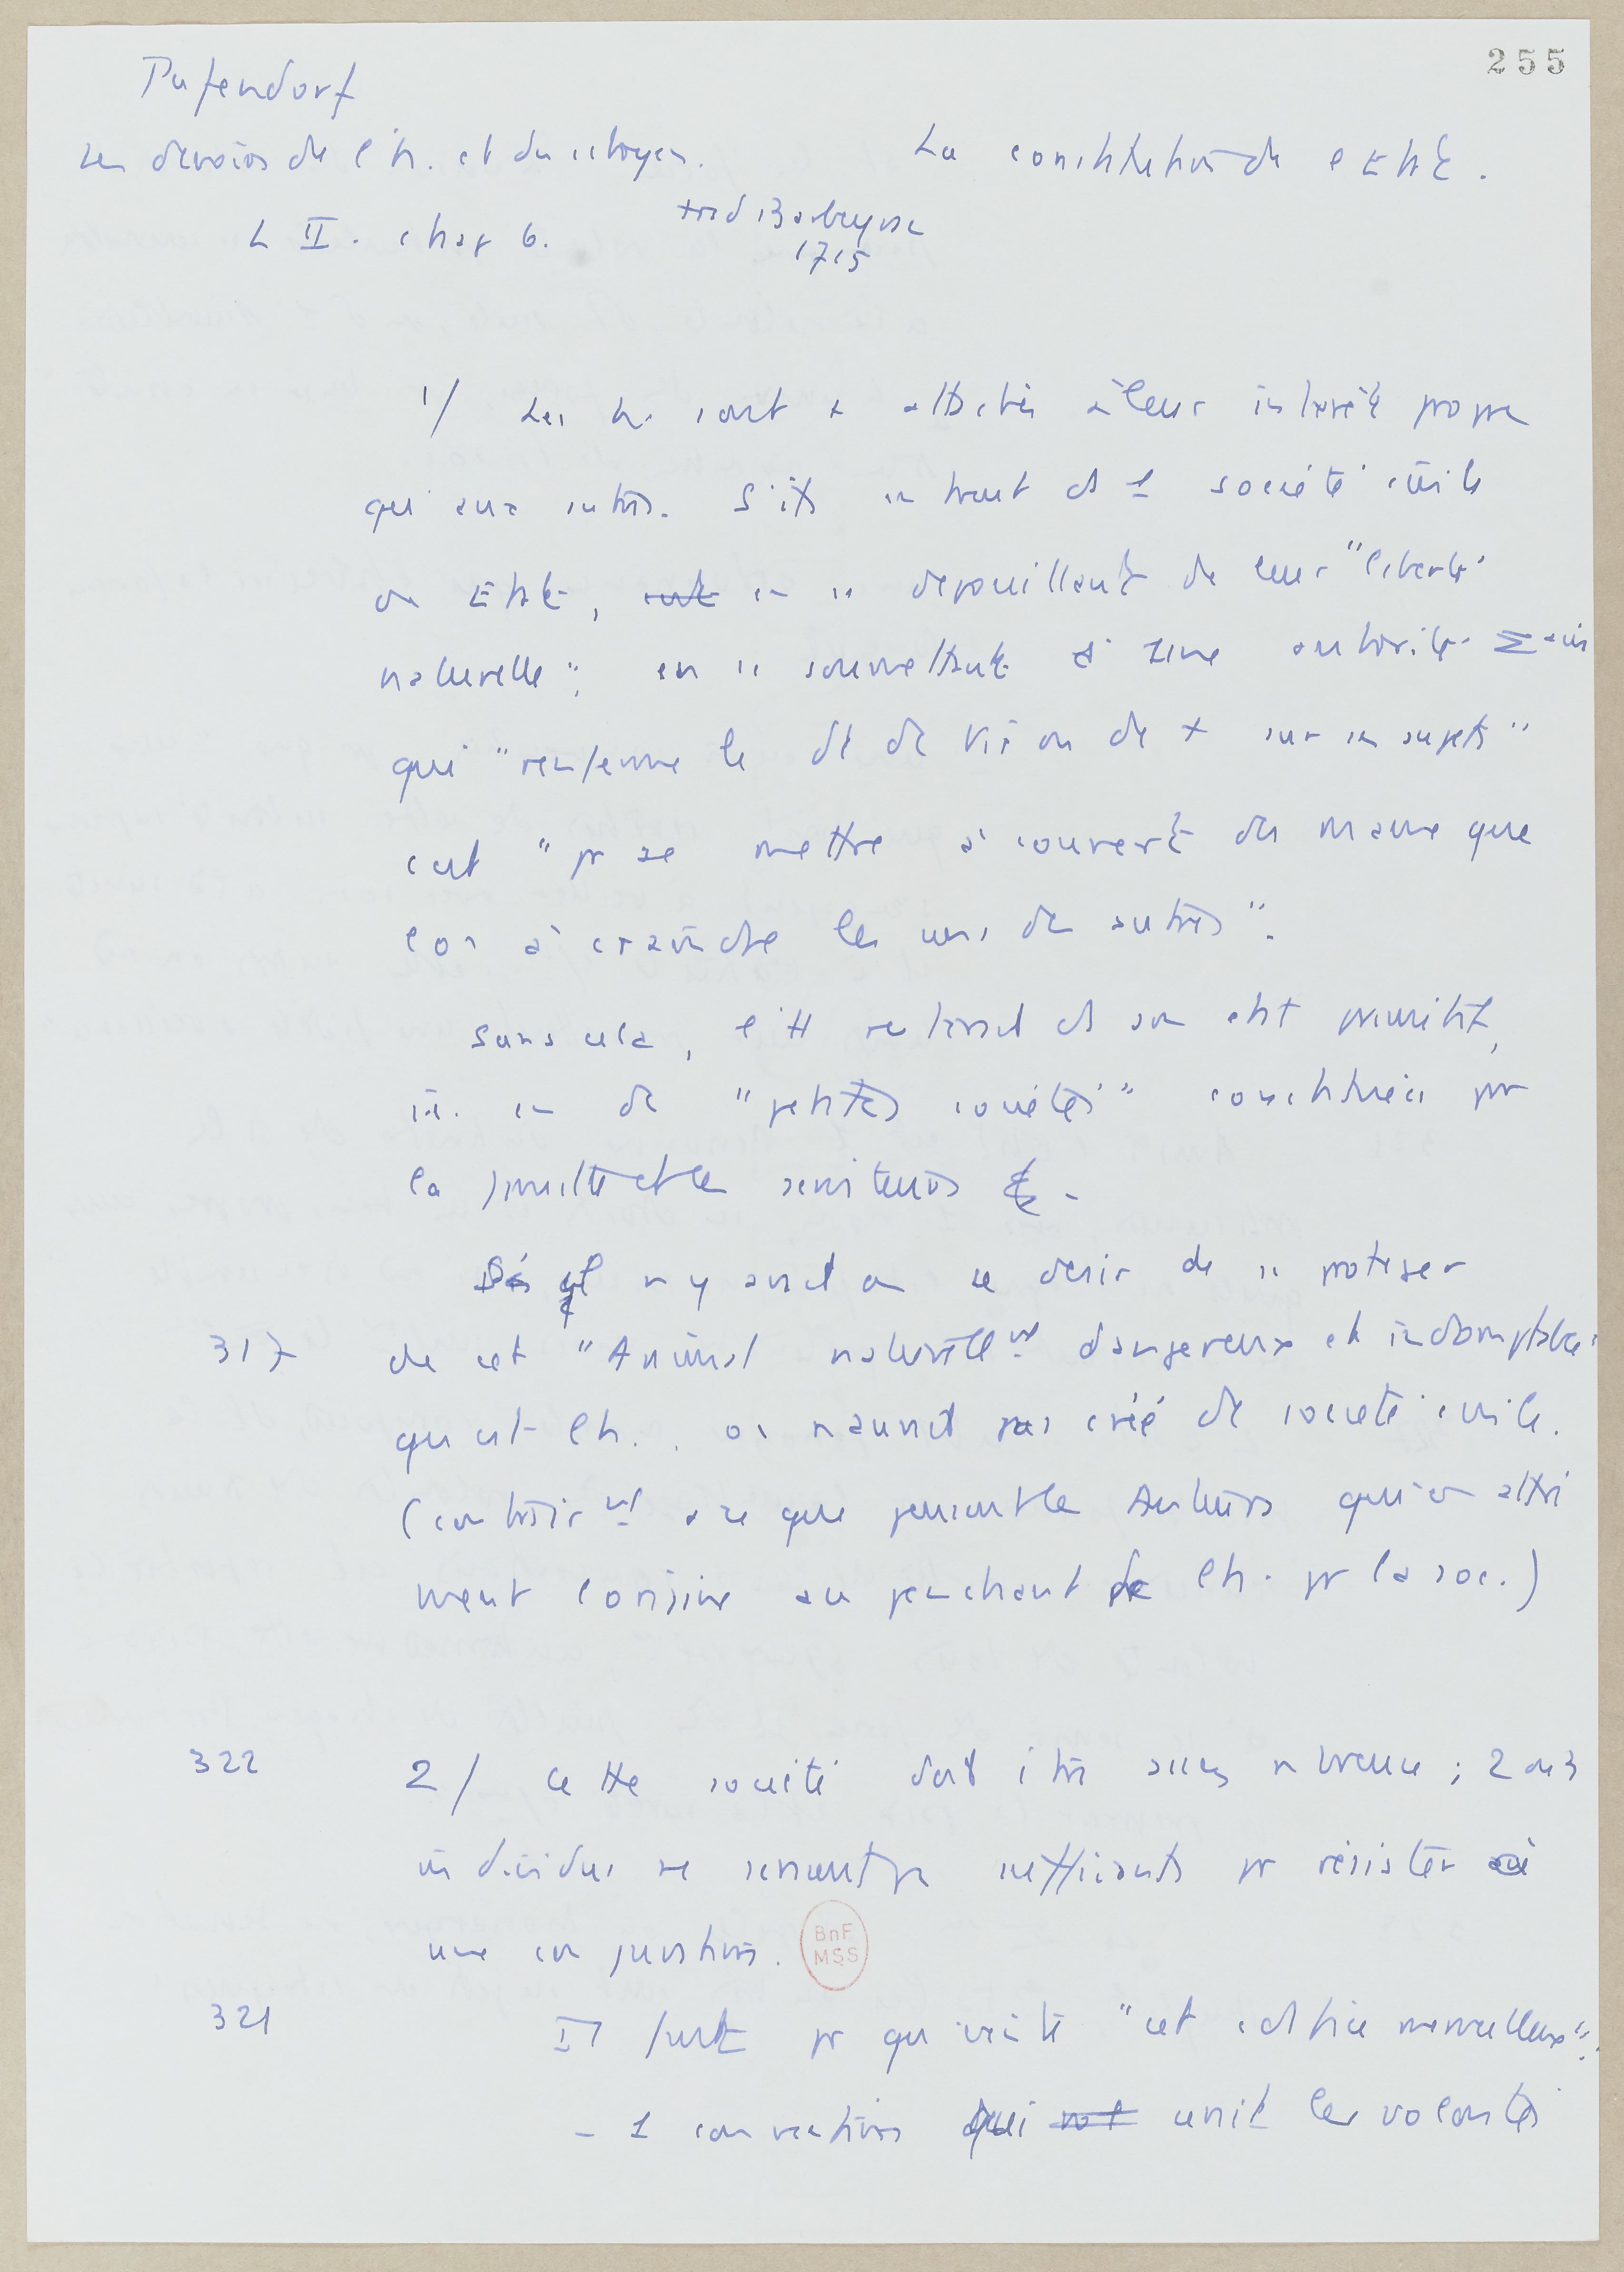 255
Pufendorf
Les devoirs de l'h. et du citoyen.
La constitution de l'Etat.
L II. chap 6.
trad Barbeyrac
1715
1/ Les h. sont + attachés à leur intérêt propre
qu'aux autres. S'ils entrent ds 1 société civile
ou Etat, en se dépouillant de leur "liberté
naturelle"; en se soumettant à une autorité
qui "renferme le dt de vie ou de + sur ses sujets"
c'est "pr se mettre à couvert des maux que
l'on a à craindre les uns des autres".
Sans cela, l'Etat ds son état primitif,
i.e. en de "petites sociétés" constituées pr
la famille et les serviteurs
n'y avait eu ce désir de se protéger
317
de cet "Animal naturellt dangereux et indomptable"
qu'est l'h. on n'aurait pas créé de société civile.
(contrairt à ce que pensent les Auteurs qui en attri
buent l'origine au penchant de l'h. pr la soc.)
322
2/ Cette société doit être assez nbreuse; 2 ou 3
individus ne seraient pas suffisants pr résister à
une conjuration.
BnF
MSS
321
Il faut pr qu'existe "cet édifice merveilleux":
- 1 convention qui unit les volontés